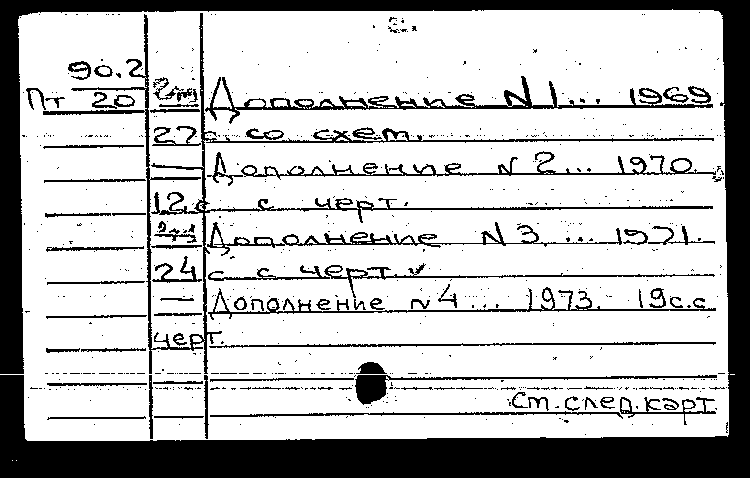 · 2. ·
90.2
Пт 20 Дополнение N 1... 1969.
27с. со схем.
— Дополнение N 2... 1970.
12 с с черт.
Дополнение N 3 ... 1971.
24 с с черт.
— Дополнение N 4 ... 1973. 19с.с
черт.
Ст. след. карт